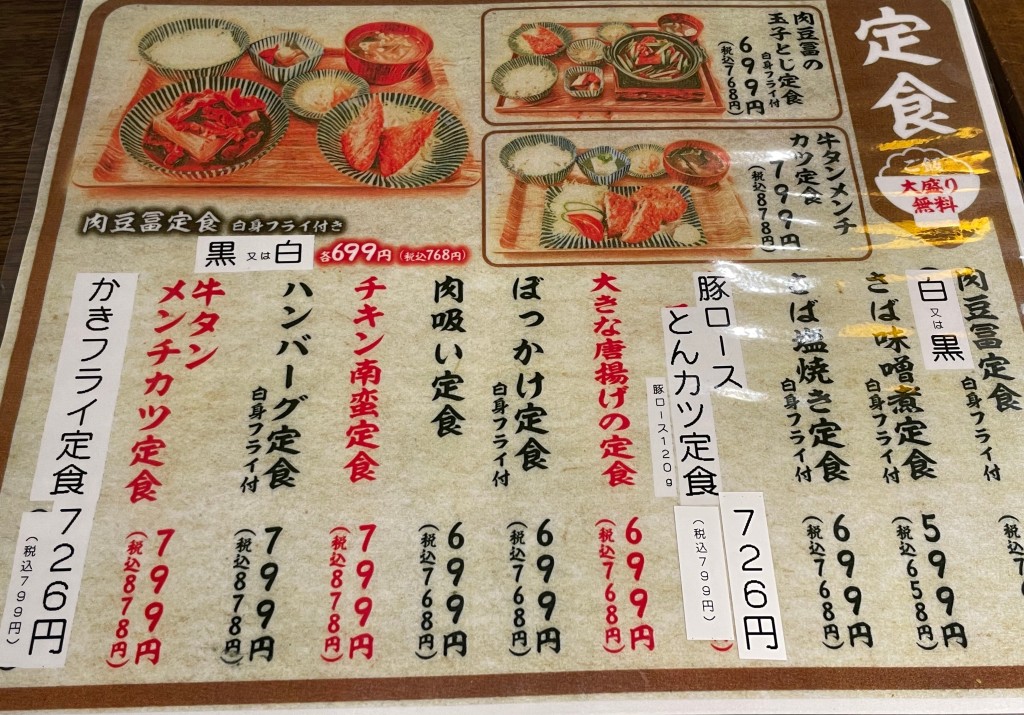 定食
ご飯
大盛り
無料
肉豆冨の
玉子とじ定食
白身フライ付
699円
(税込768円)
牛タンメンチ
カツ定食
799円
(税込878円)
肉豆冨定食 白身フライ付き
黒又は白 各699円(税込768円)
肉豆冨定食
白又は黒
白身フライ付
さば味噌煮定食
白身フライ付
599円
(税込658円)
さば塩焼き定食
白身フライ付
699円
(税込768円)
豚ロース
とんカツ定食
豚ロース120g
726円
(税込799円)
大きな唐揚げの定食
699円
(税込768円)
ぼっかけ定食
白身フライ付
699円
(税込768円)
肉吸い定食
699円
(税込768円)
チキン南蛮定食
799円
(税込878円)
ハンバーグ定食
白身フライ付
799円
(税込878円)
牛タン
メンチカツ定食
799円
(税込878円)
かきフライ定食
726円
(税込799円)